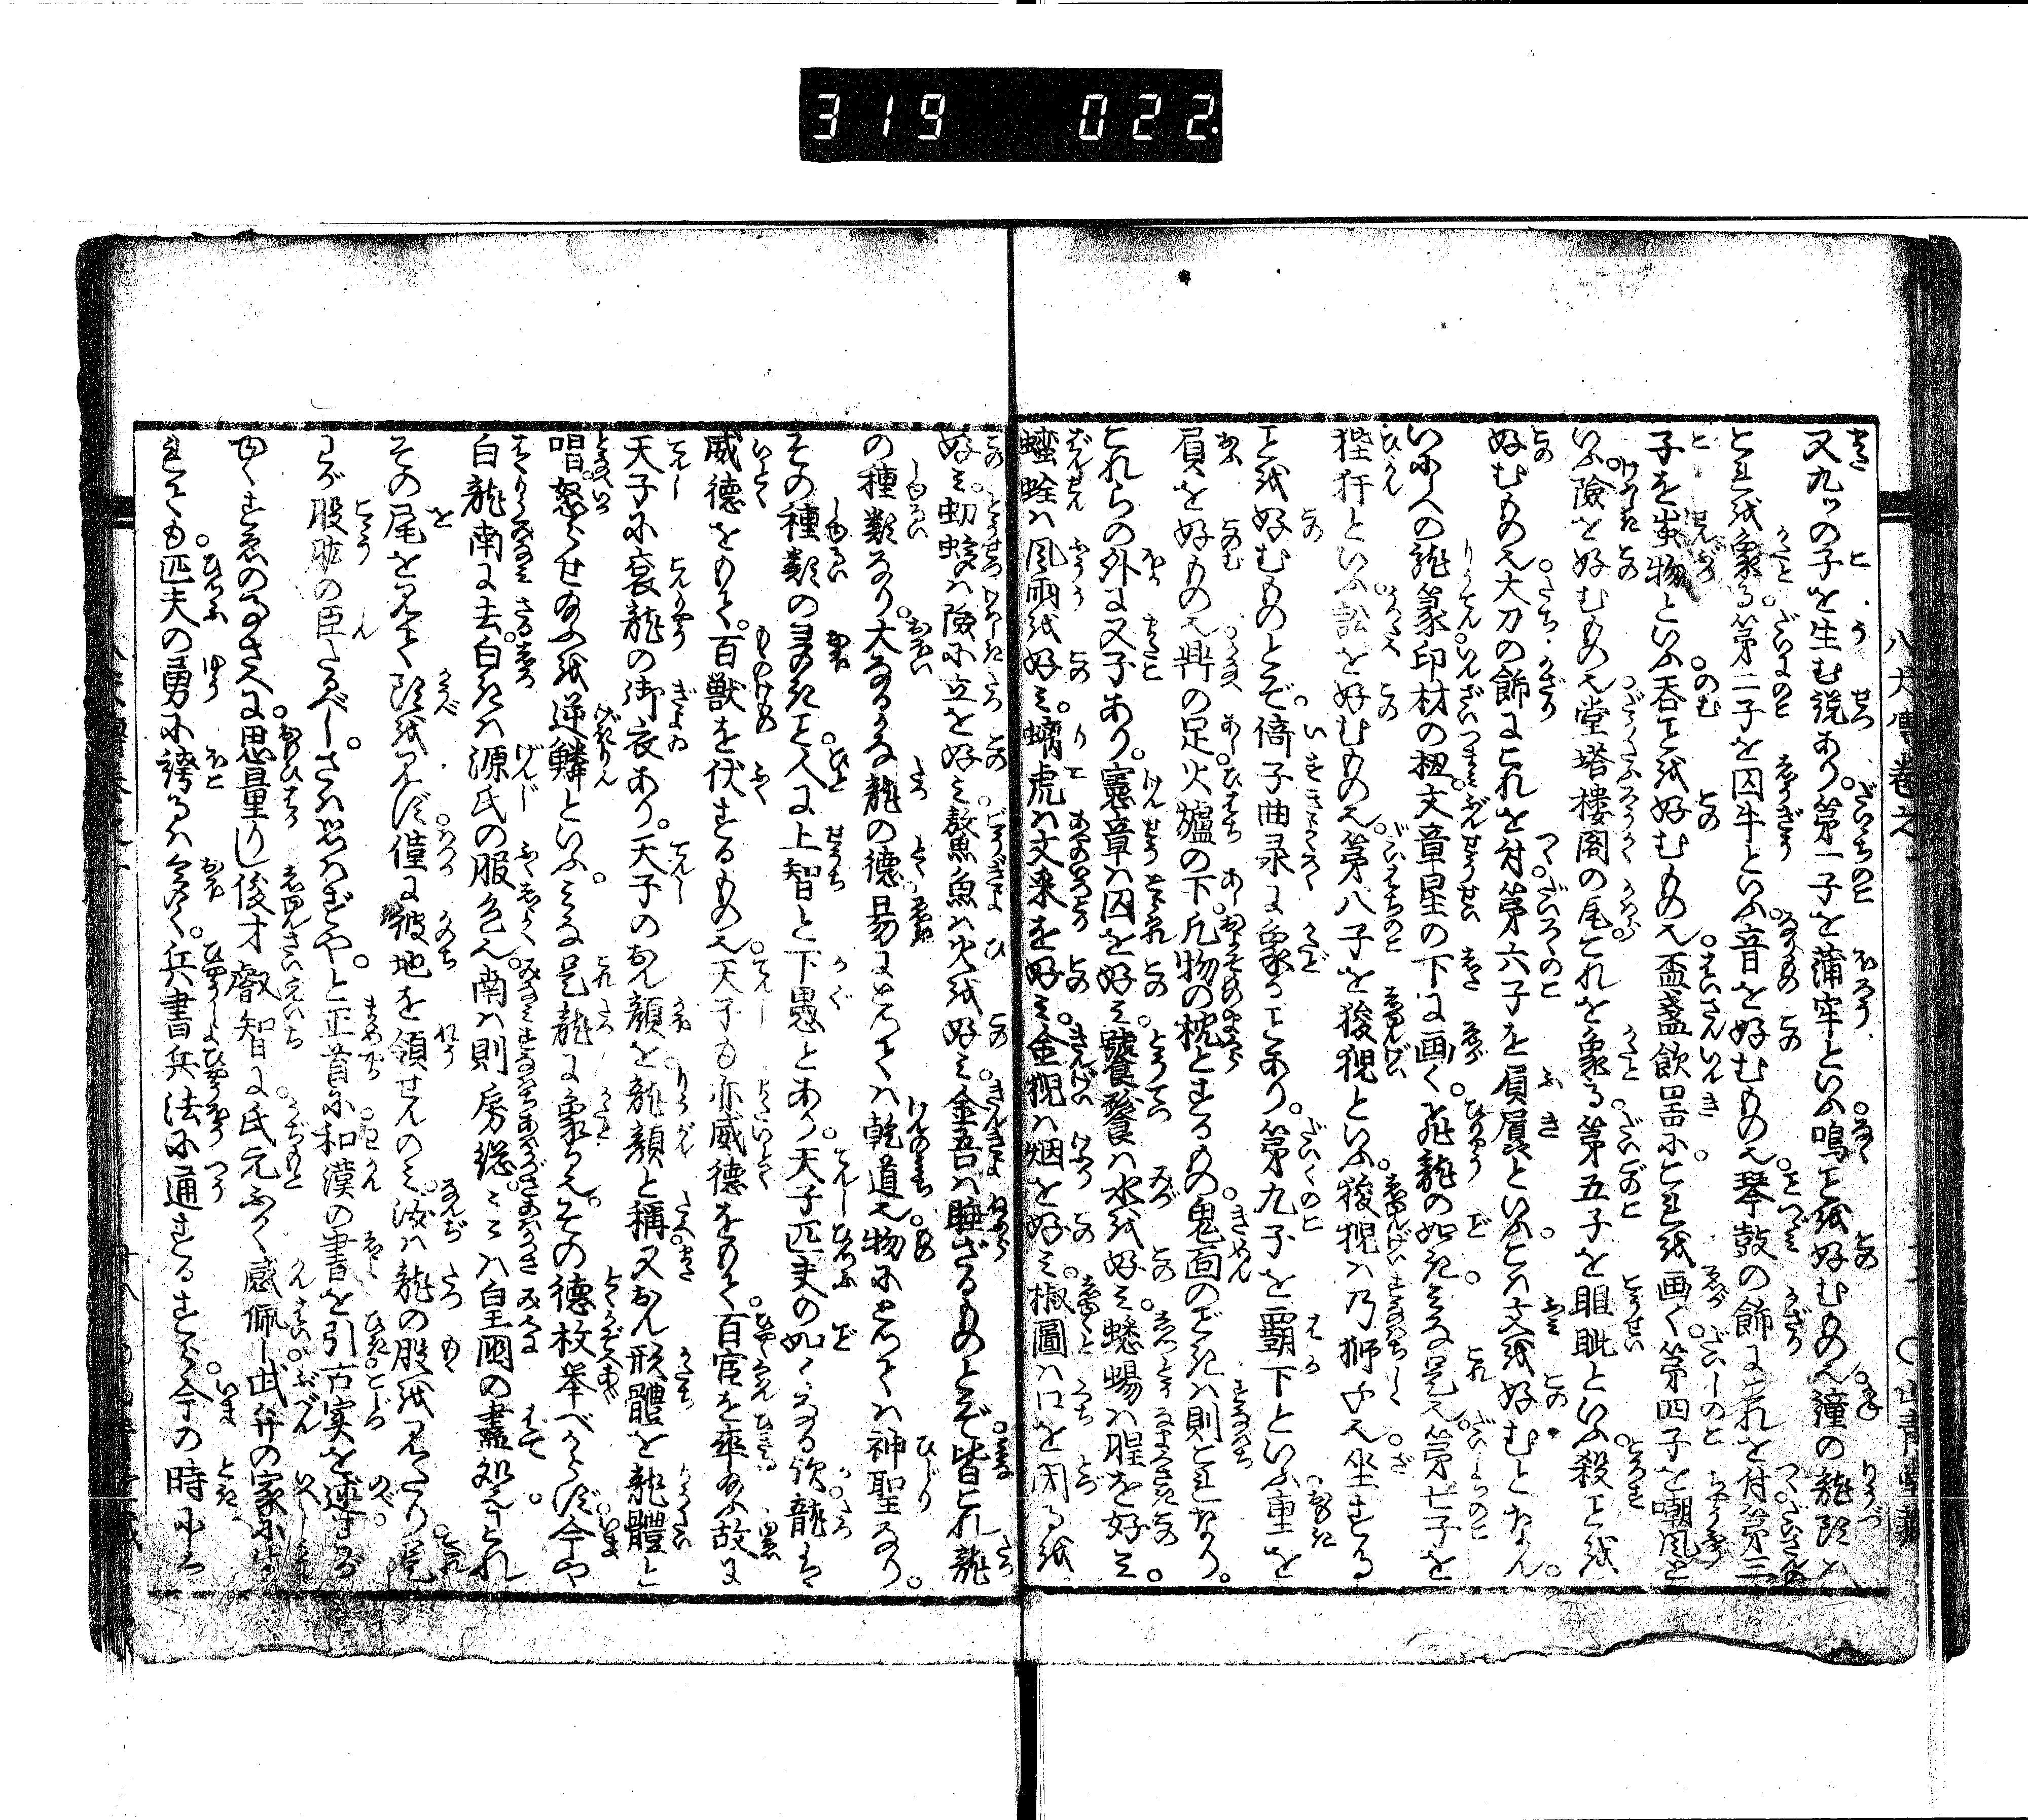 319 022
又九ツの子を生む説あり。第一子を蒲牢といふ鳴ことを好むもの也鐘の龍頭は
これを象る。第二子を囚牛といふ音を好むもの也琴鼓の飾にこれを付第三
子を蚩物といふ呑ことを好むもの也盃盞飲器にこれを画く第四子を嘲風と
いふ險を好むもの也堂塔樓閣の尾これを象る第五子を睚眦といふ殺ことを
好むもの也大刀の飾にこれを付第六子を負屓といふこは文を好むとなん。
いにしへの龍篆印材の杻文章星の下に画く飛龍の如きみな是也第七子を
狴犴といふ訟を好むもの也第八子を狻猊といふ狻猊は乃獅子也坐する
ことを好むものとぞ倚子曲录に象ることあり。第九子を覇下といふ重を
負を好もの也鼎の足火爐の下凡物の枕とするもの鬼面のごときは則これなり。
これらの外に又子あり。憲章は囚を好み饕餮は水を好み蟋蜴は腥を好み。
蠻蜍は風雨を好み螭虎は文采を好み金猊は烟を好み椒圖は口を閉るを
好み虭蛥は險に立を好み鰲魚は火を好み金吾は睡ざるものとぞ皆これ龍
の種類なり大なるかな龍の德易にとりては乾道也物にとりては神聖なり。
その種類の多きこと人に上智と下愚とあり天子匹夫の如くなる歟龍は
威德をもて。百獣を伏するもの也天子も亦威德をもて百官を率給ふ故に
天子に袞龍の御衣あり。天子のおん顔を龍顔と稱又おん形體を龍體と
唱怒らせ給ふを逆鱗といふ。みな是龍に象る也その德枚挙べからず今や
白龍南に去白きは源氏の服色也南は則房総こゝは皇國の盡処也われ
その尾を見て頭を見ず僅に彼地を領せんのみ汝は龍の股を見たり是
わが股肱の臣たるべしさは思はずや。と正首に和漢の書を引古実を述わが
ゆくすゑの事さへに思量りし後才叡智に氏元ふかく感佩し武弁の家に生
れても匹夫の勇に誇るは多く。兵書兵法に通するすら今の時には